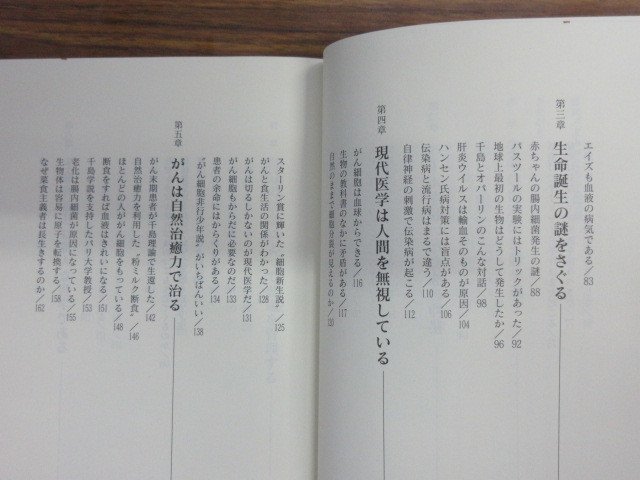 エイズも血液の病気である/83
第三章 生命誕生の謎をさぐる
赤ちゃんの腸内細菌発生の謎/88
パスツールの実験にはトリックがあった/92
地球上最初の生物はどうして発生したか/96
千島とオパーリンのこんな対話/98
肝炎ウイルスは輸血そのものが原因/104
ハンセン氏病対策には盲点がある/106
伝染病と流行病はまるで違う/110
自律神経の刺激で伝染病が起こる/112
第四章 現代医学は人間を無視している
がん細胞は血球からできる/116
生物の教科書のなかに矛盾がある/117
自然のままで細胞分裂が見えるのか
スターリン賞に輝いた“細胞新生説”/125
がんと食生活の関係がわかった/128
がんは切るしかないのが現代医学だ/131
がん細胞もからだに必要なのだ/133
患者の余命にはからくりがある/134
“がん細胞非行少年説”がいちばんいい/138
第五章 がんは自然治癒力で治る
がん末期患者が千島理論で生還した/142
自然治癒力を利用した“粉ミルク断食”/146
ほとんどの人ががん細胞をもっている/148
断食をすれば血液はきれいになる/151
千島学説を支持したパリ大学教授/153
老化は腸内細菌が原因になっている/155
生物体は容易に原子を転換する/158
なぜ菜食主義者は長生きするのか/162